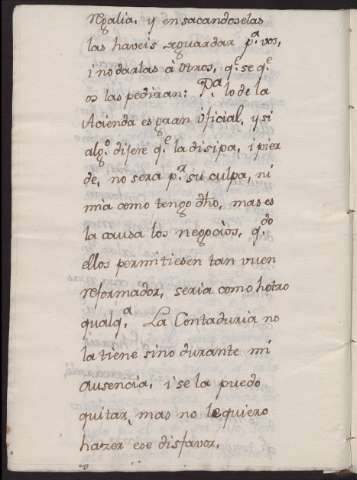 regalia, y ensacandoselas
las haveis aguardar p.ª vos,
i no darlas á otros, q.e se q.e
os las pediran: P.ª lo de la
Acienda es gran oficial, y si
alg.º dijere q.e la disipa, i pier
de, no sera p.r su culpa, ni
mia como tengo dho, mas es
la causa los negocios, q.do
ellos permitiesen tan vuen
reformador, seria como hotro
qualq.ª La Contaduria no
la tiene sino durante mi
ausencia, i se la puedo
quitar, mas no le quiero
hazer ese disfavor.